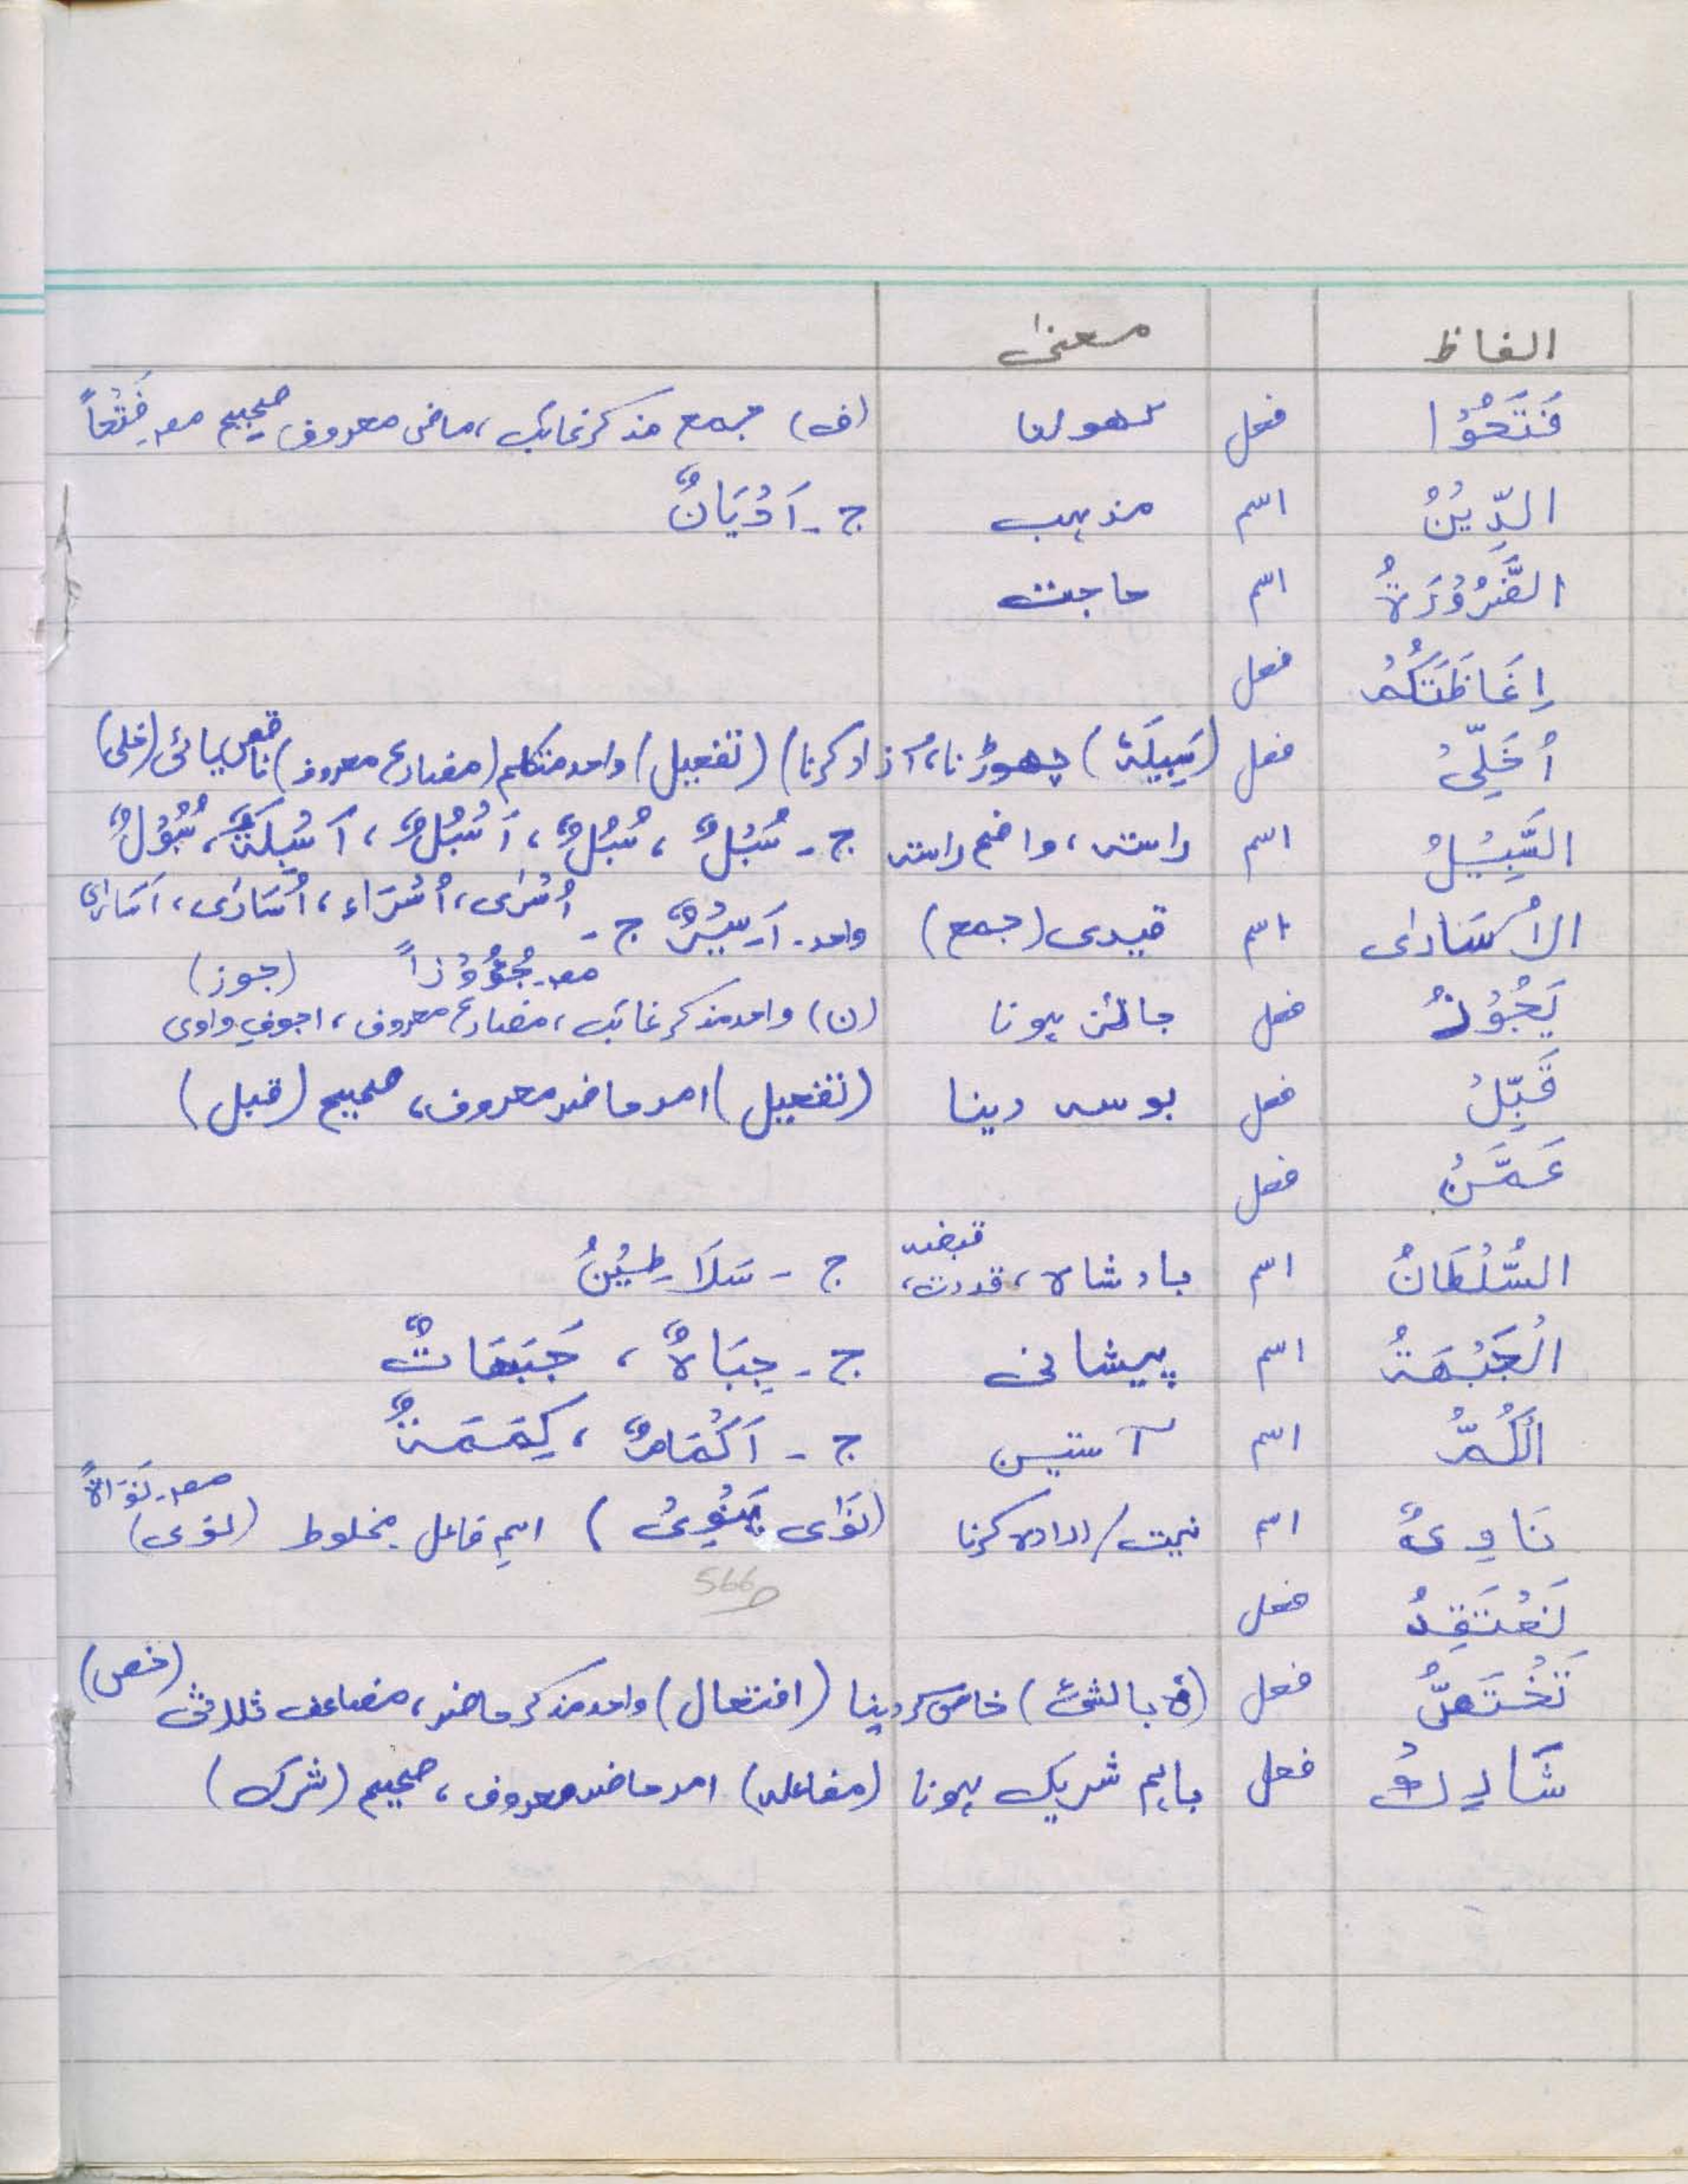 الفاظ معنیٰ
فَتَحُوْا فعل کھولنا (ف) جمع مذکر غائب، ماضی معروف، صحیح مصـ فَتْحاً
الدِّيْنُ اسم مذہب ج۔ اَدْيَانٌ
الضَّرُوْرَةُ اسم حاجت
اِغَاظَتَكُمْ فعل
اُخَلِّیْ فعل (سَبِيلَهٗ) چھوڑنا، آزاد کرنا) (تفعیل) واحد متکلم (مضارع معروف) ناقص یائی (خلی)
السَّبِيْلُ اسم راستہ، واضح راستہ ج۔ سُبُلٌ، سُبْلٌ، اَسْبُلٌ، اَسْبِلَةٌ، سُبُوْلٌ
اُسْرٰی، اُسَرَاء، اُسَارٰی، اَسَارٰی
الْاُسَارٰی اسم قیدی (جمع) واحد۔ اَسِيْرٌ ج۔
مصـ جُؤُوْزاً (جوز)
يَجُوْزُ فعل جائز ہونا (ن) واحد مذکر غائب، مضارع معروف، اجوفِ واوی
قَبِّلْ فعل بوسہ دینا (تفعیل) امر حاضر معروف، صحیح (قبل)
عَمَّنْ فعل
السُّلْطَانُ اسم بادشاہ، قدرت، قبضہ ج - سَلَاطِيْنُ
الْجَبْهَةُ اسم پیشانی ج۔ جِبَاهٌ، جَبَهَاتٌ
اَلْكُمُّ اسم آستین ج - اَكْمَامٌ، كِمَمَةٌ
مصـ۔ نَوَاةً
نَاوِیٌ اسم نیت/ارادہ کرنا (نَوٰی يَنْوِیْ) اسمِ فاعل۔ مخلوط (نوی)
ص566
نَعْتَقِدُ فعل
تَخْتَصُّ فعل (ہٗ بالشئ) خاص کر دینا (افتعال) واحد مذکر حاضر، مضاعف ثلاثی (خص)
شَارِكْ فعل باہم شریک ہونا (مفاعلہ) امر حاضر معروف، صحیح (شرک)